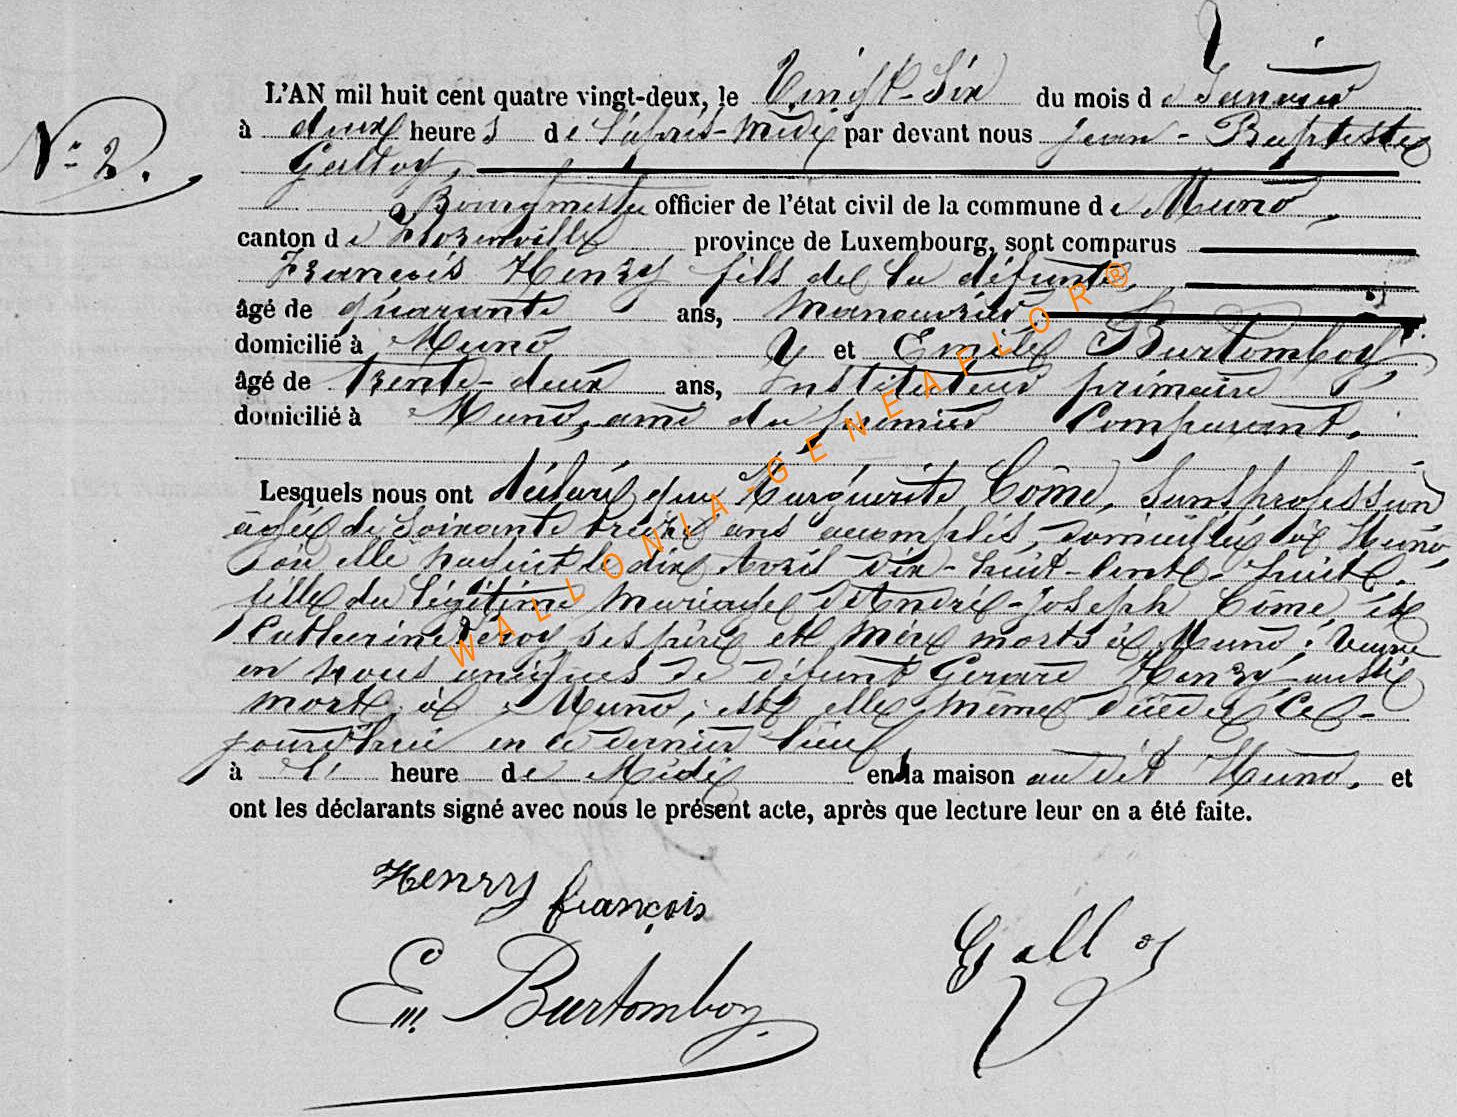 N° 2.
L'AN mil huit cent quatre vingt-deux, le Vingt-Six du mois de Janvier
à deux heures de l'après-Midi par devant nous Jean-Baptiste
Galloy,
Bourgmestre officier de l'état civil de la commune de Muno,
canton de Florenville province de Luxembourg, sont comparus
François Henry fils de la défunte,
âgé de quarante ans, Manouvrier
domicilié à Muno et Emile Burtomboy,
âgé de trente-deux ans, Instituteur primaire
domicilié à Muno, ami du premier Comparant.
Lesquels nous ont déclaré que Marguerite Côme, Sans profession
âgée de Soixante treize ans accomplis, domiciliée à Muno,
où elle naquit le dix Avril Dix-huit-Cent-huit,
fille du légitime Mariage d'André-Joseph Côme, et
Catherine Leroy ses père et Mère morts à Muno; Veuve
en Noces de défunt Gérard Henry, aussi
mort à Muno, est elle même décédée Ce-
jourd'hui en ce dernier lieu,
à l' heure de Midi en la maison au dit Muno. et
ont les déclarants signé avec nous le présent acte, après que lecture leur en a été faite.
Henry françois
Em Burtomboy
Galloy
WALLONIA-GENEAFLOR®